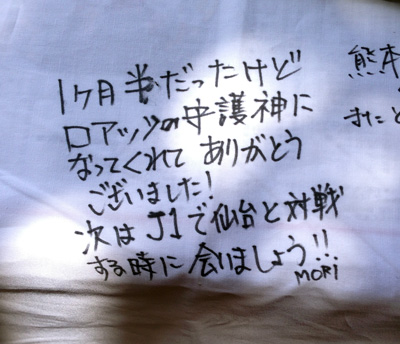 1ヶ月半だったけど
ロアッソの守護神に
なってくれて ありがとう
ございました!
次は J1で仙台と対戦
する時に 会いましょう!!
MORI
熊本
またと